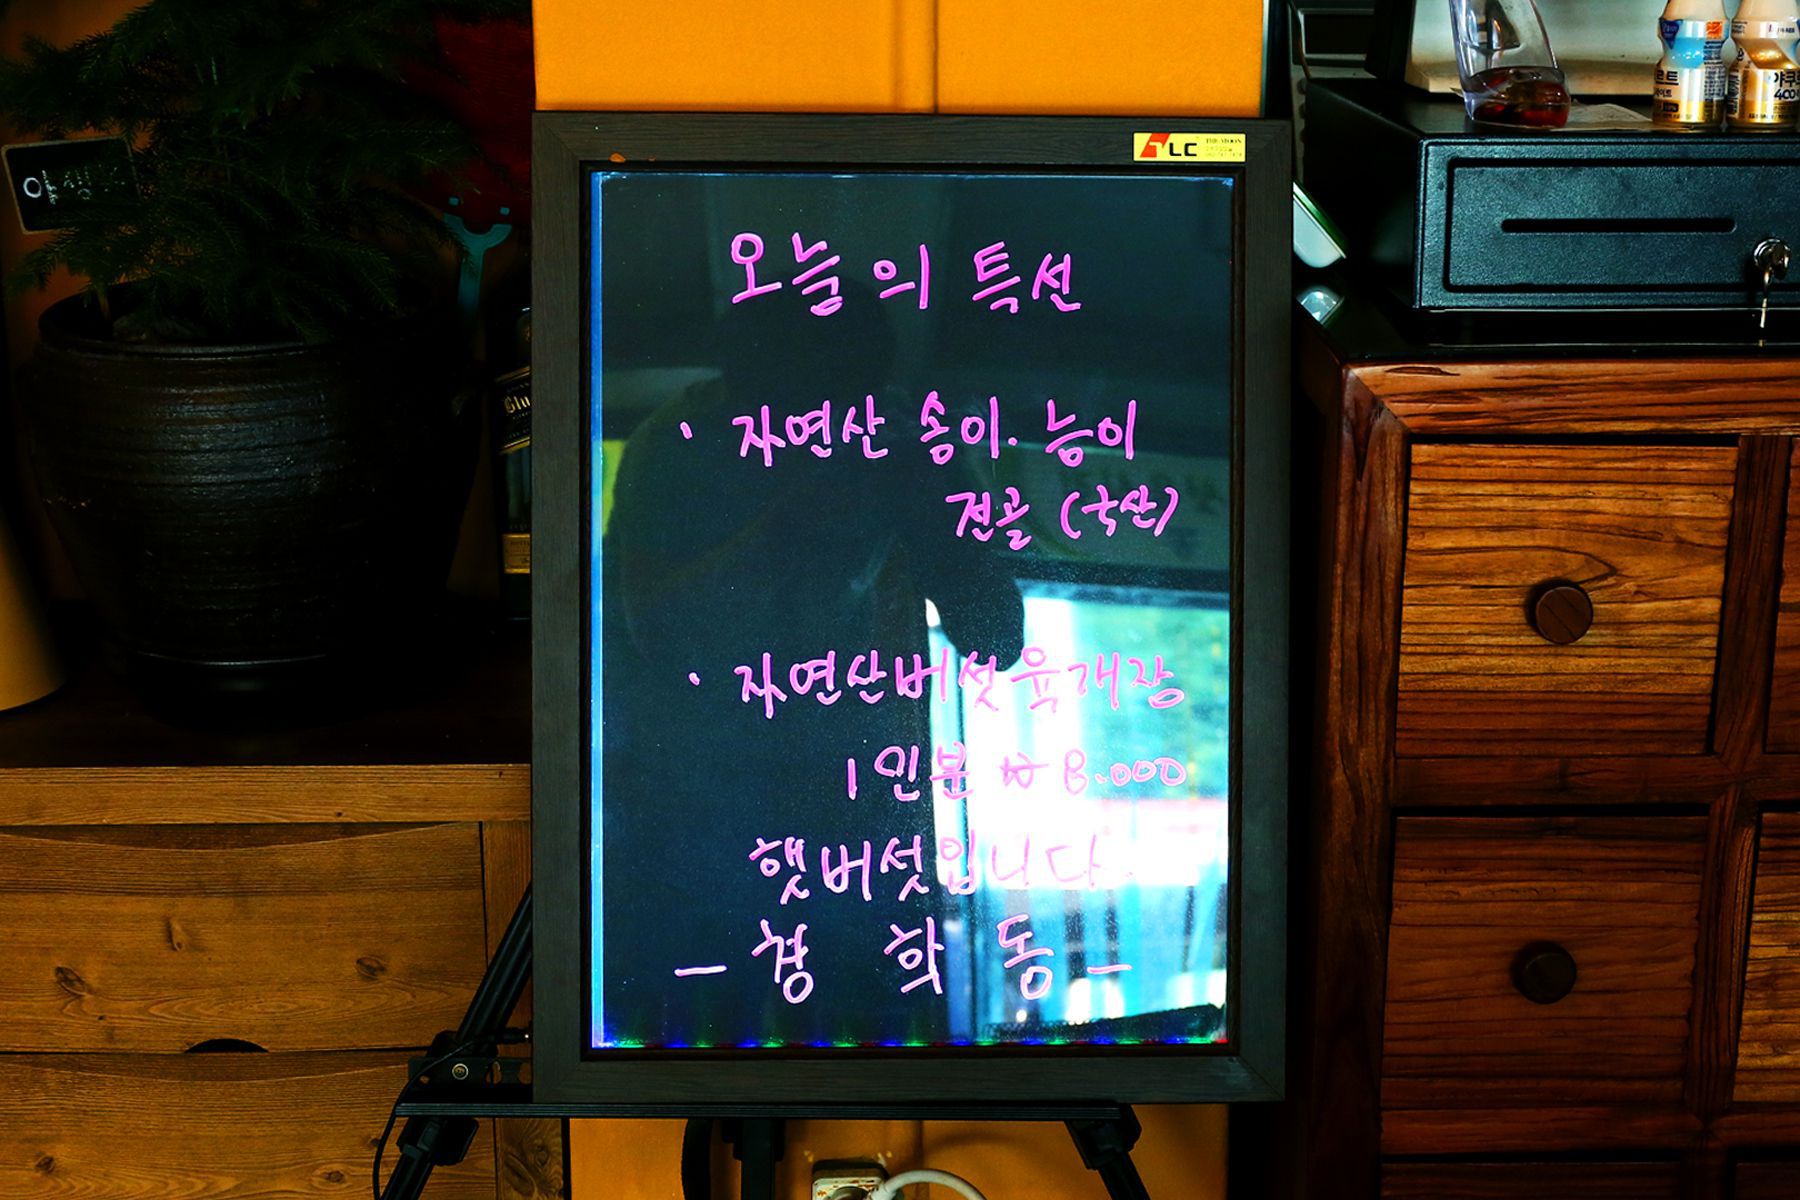 오늘의 특선
· 자연산 송이·능이
전골 (국산)
· 자연산버섯육개장
1인분 ₩ 8.000
햇버섯입니다.
- 경학동 -
LC
Blu
야쿠
400